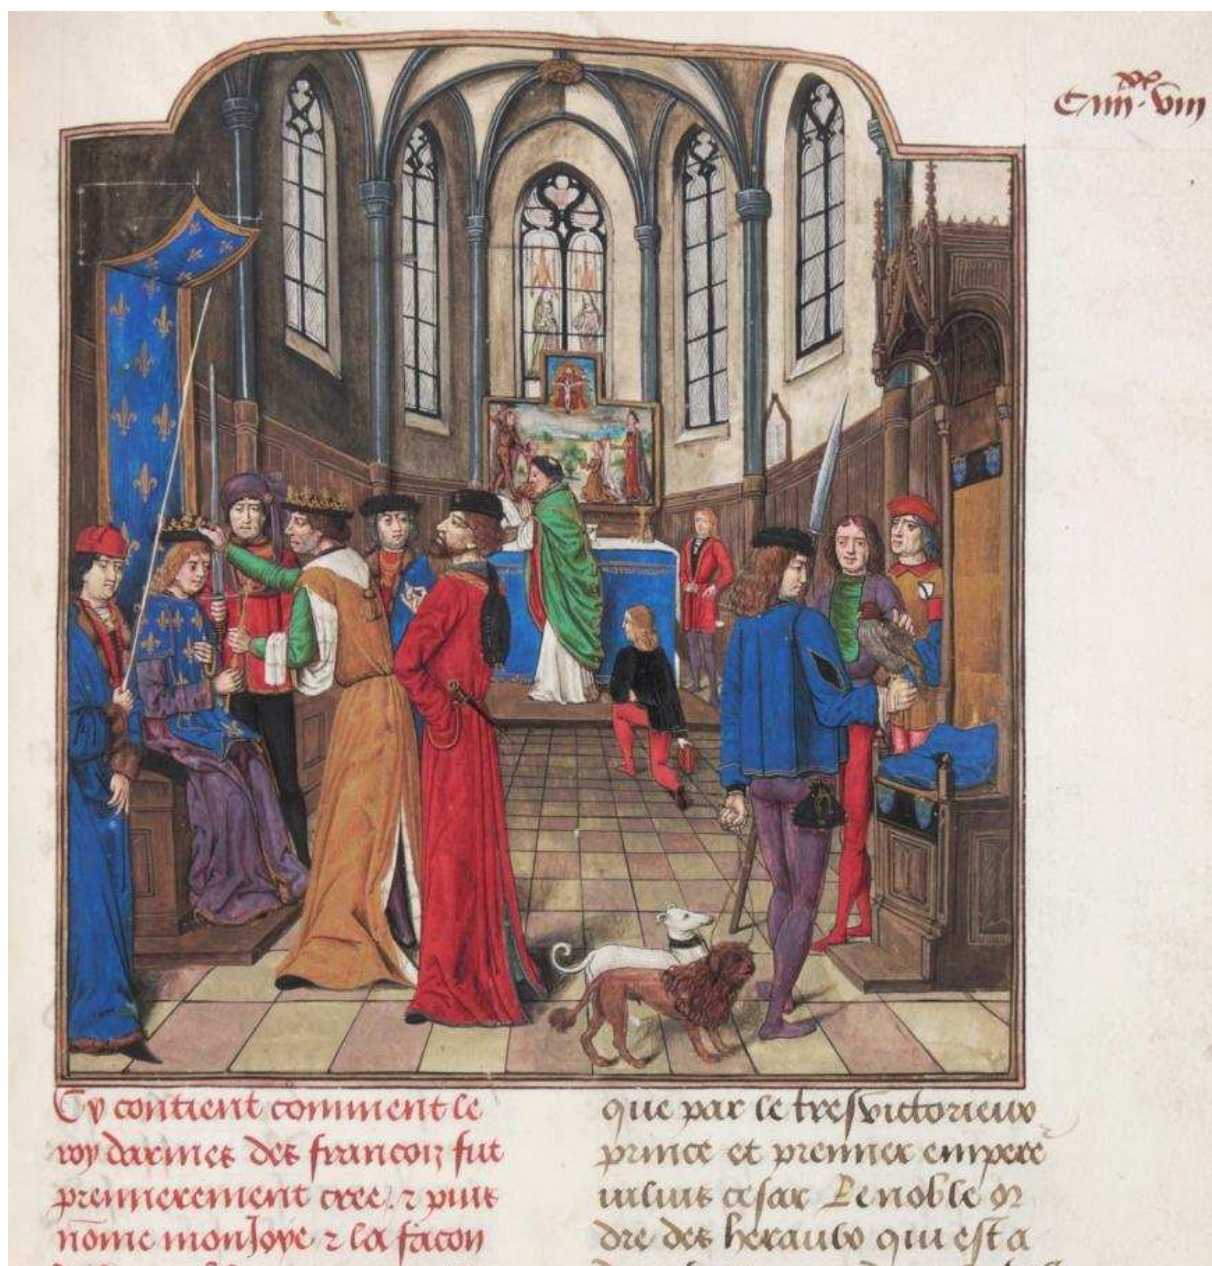 xx
Ciiii·viii
Cy contient comment le
roy darmes des francoiz fut
premierement cree. ⁊ puis
nōme monJoye ⁊ la facon
que par le tresvictorieux
prince et premier empere
iulius cesar Le noble or
dre des heraulx qui est a